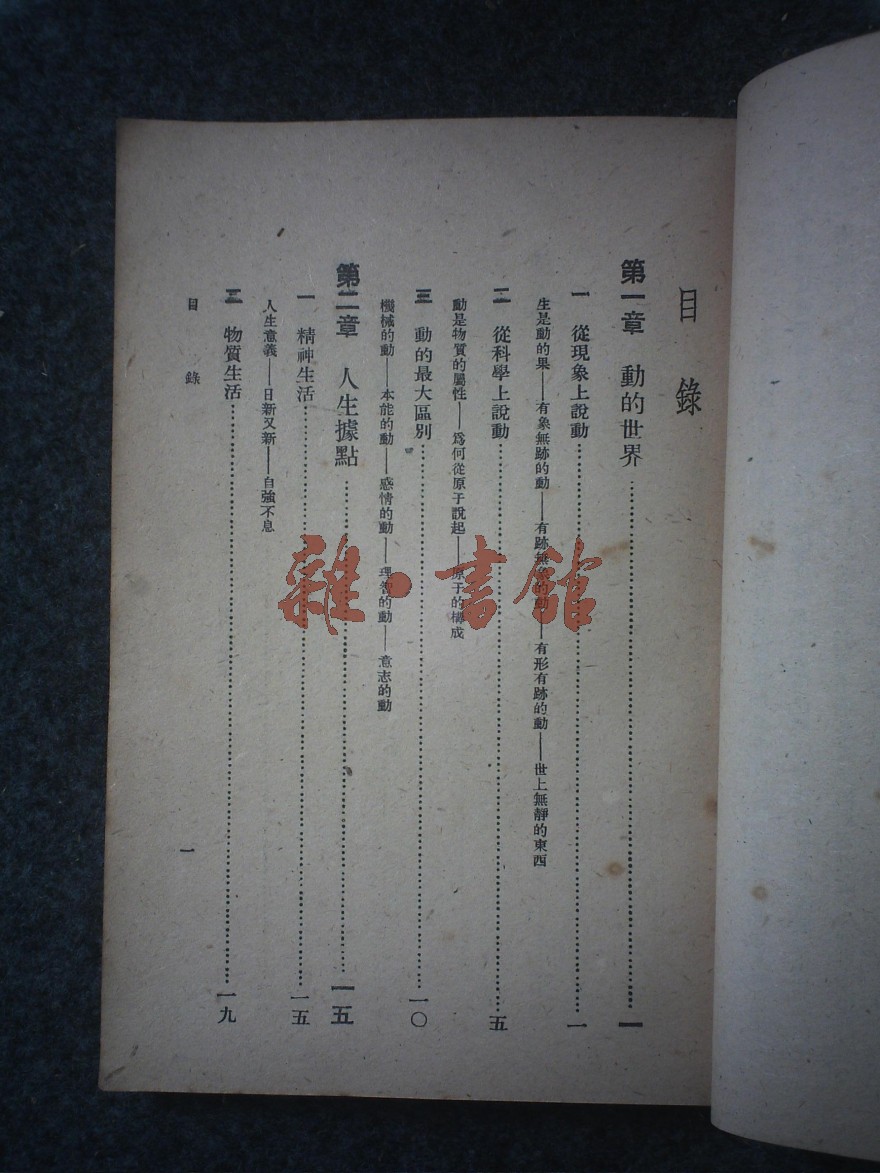 目錄
第一章 動的世界……一
一 從現象上說動……一
生是動的果——有象無跡的動——有跡無象的動——有形有跡的動——世上無靜的東西
二 從科學上說動……五
動是物質的屬性——爲何從原子說起——原子的構成
三 動的最大區別……一〇
機械的動——本能的動——感情的動——理智的動——意志的動
第二章 人生據點……一五
一 精神生活……一五
人生意義——日新又新——自強不息
二 物質生活……一九
目錄 一
雜·書館